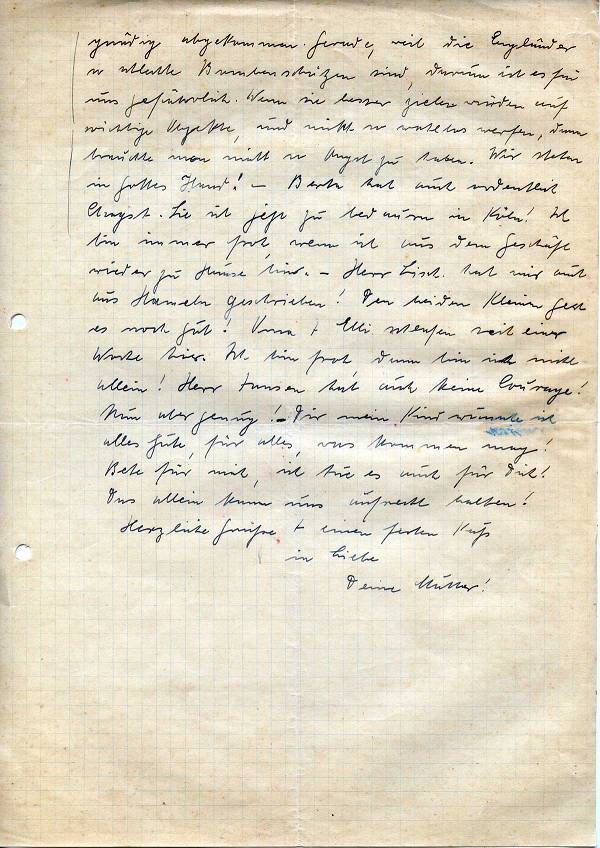 gnädig abgekommen. Gerade, weil die Engländer
so schlechte Bombenschützen sind, darum ist es für
uns gefährlich. Wenn sie besser zielen würden auf
wichtige Objekte, und nicht so wahllos werfen, dann
brauchte man nicht so Angst zu haben. Wir stehen
in Gottes Hand! – Berta hat auch ordentlich
Angst. Sie ist jetzt zu bedauern in Köln! Ich
bin immer froh, wenn ich aus dem Geschäft
wieder zu Hause bin. – Herr Lisch. hat mir auch
aus Hameln geschrieben! Den beiden Kleinen geht
es noch gut! + Elli schlafen seit einer
Woche hier. Ich bin froh dann bin ich nicht
allein! Herr Jansen hat auch keine Courage!
Nun aber genug! – Dir mein Kind wünsche ich
alles Gute, für alles, was kommen mag!
Bete für mich, ich tue es auch für Dich!
Das allein kann uns aufrecht halten!
Herzliche Grüsse + einen festen Kuß
in Liebe
Deine Mutter!